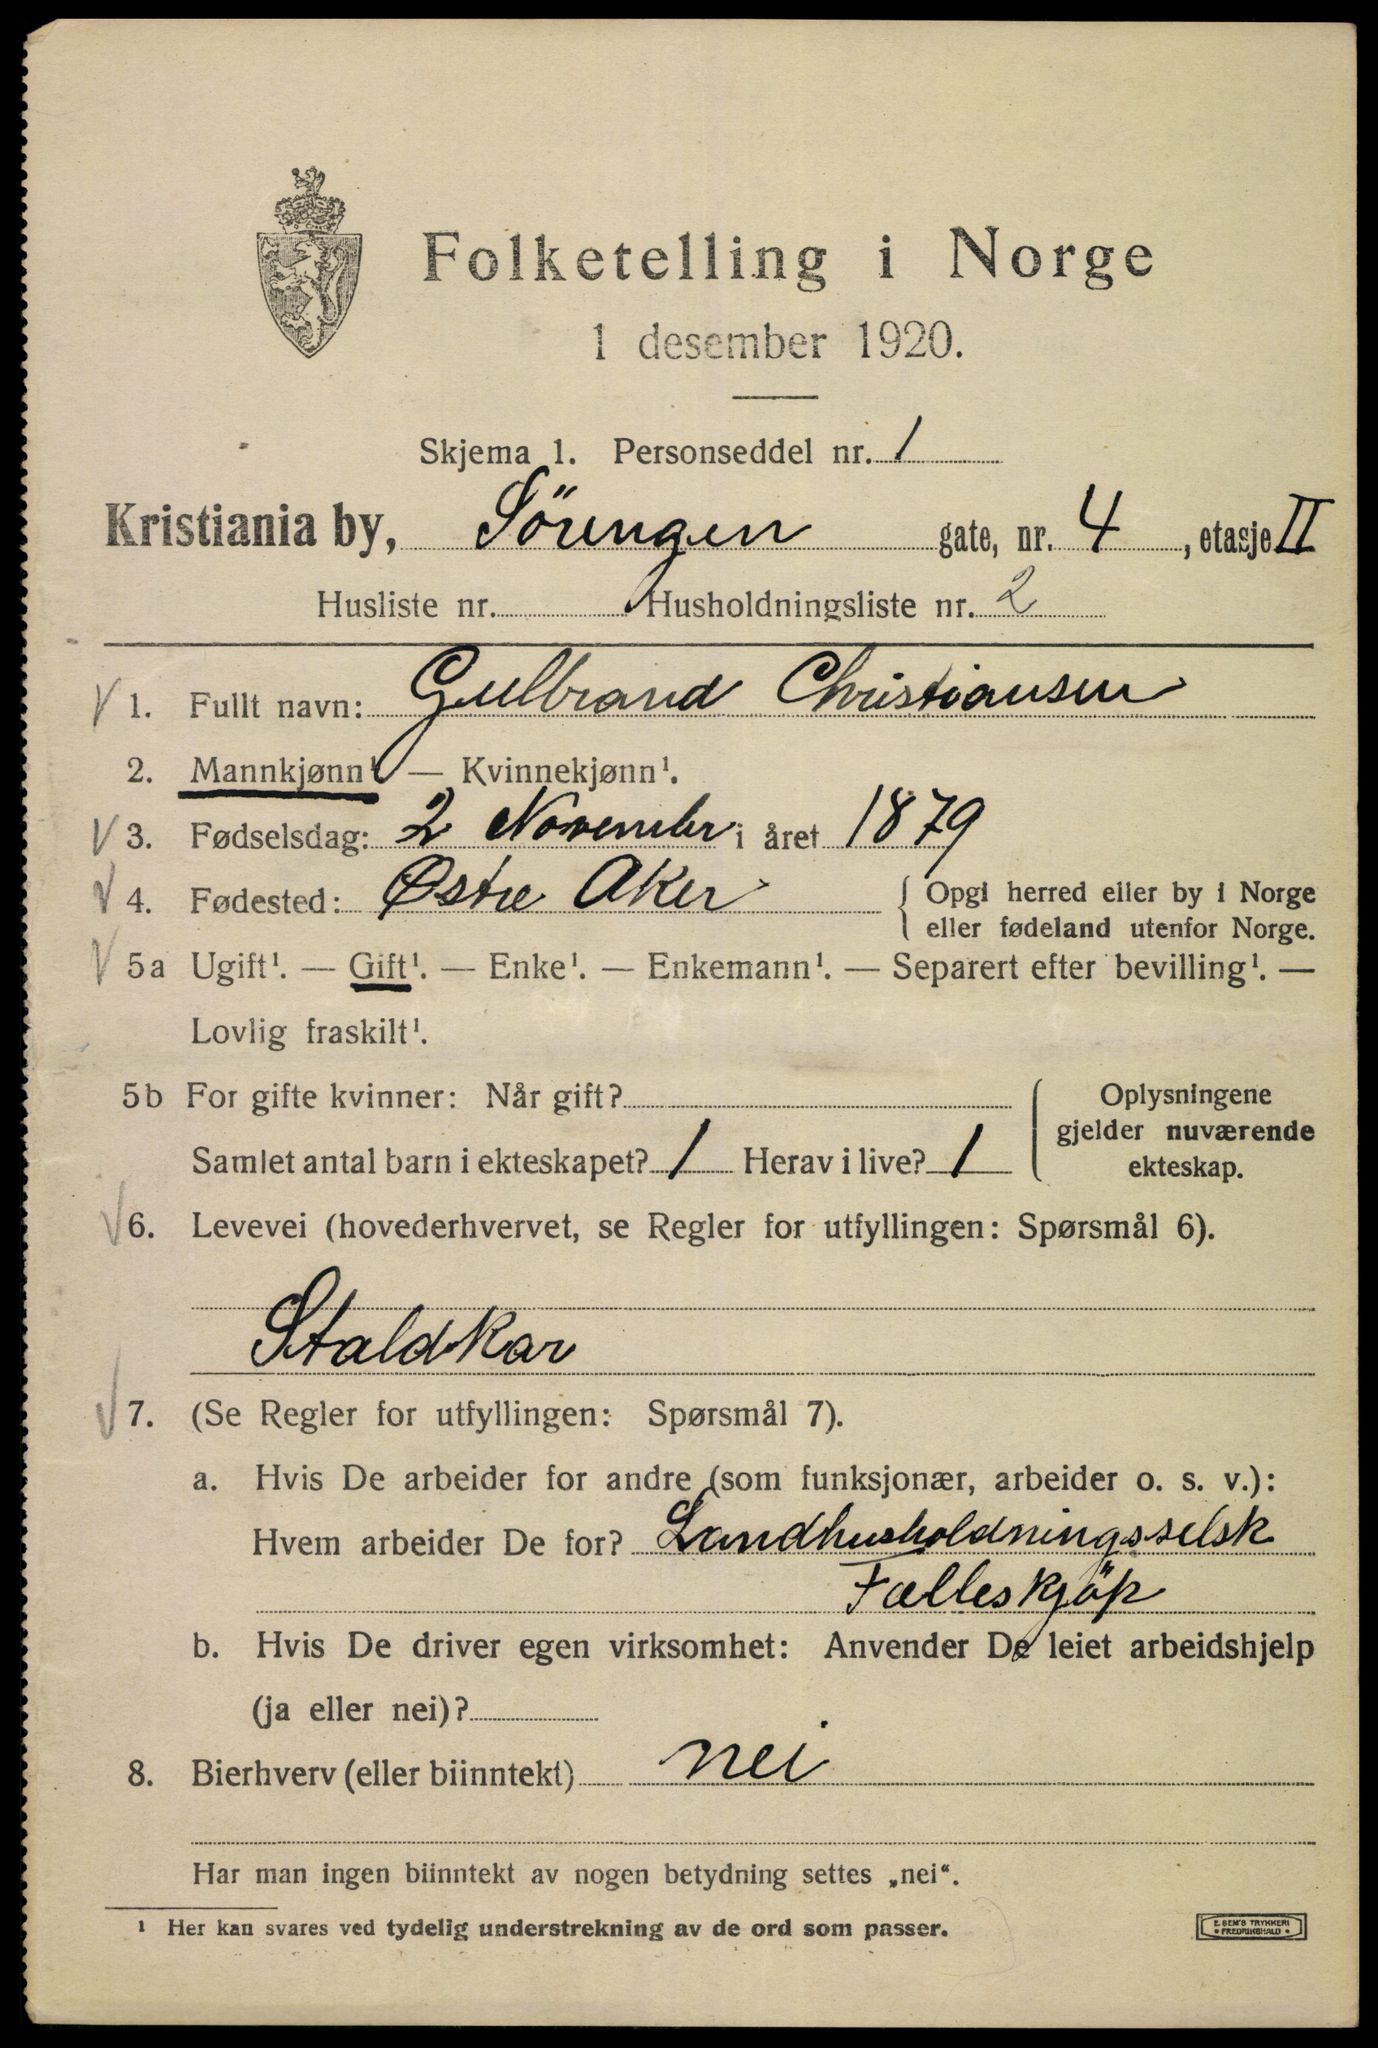 Folketelling i Norge
1 desember 1920.
Skjema 1. Personseddel nr. 1
Kristiania by, Sörengen gate, nr. 4, etasje II
Husliste nr. Husholdningsliste nr. 2
1. Fullt navn: Gulbrand Christiansen
2. Mannkjønn¹ — Kvinnekjønn¹.
3. Fødselsdag: 2 November i året 1879
4. Fødested: Østre Aker { Opgi herred eller by i Norge
eller fødeland utenfor Norge.
5a Ugift¹. — Gift¹. — Enke¹. — Enkemann¹. — Separert efter bevilling¹. —
Lovlig fraskilt¹.
5b For gifte kvinner: Når gift? Oplysningene
gjelder nuværende
Samlet antal barn i ekteskapet? 1 Herav i live? 1 ekteskap.
6. Levevei (hovederhvervet, se Regler for utfyllingen: Spørsmål 6).
Staldkar
7. (Se Regler for utfyllingen: Spørsmål 7).
a. Hvis De arbeider for andre (som funksjonær, arbeider o. s. v.):
Hvem arbeider De for? Landhusholdningsselsk
Fælleskjöp
b. Hvis De driver egen virksomhet: Anvender De leiet arbeidshjelp
(ja eller nei)?
8. Bierhverv (eller biinntekt) nei
Har man ingen biinntekt av nogen betydning settes „nei“.
¹ Her kan svares ved tydelig understrekning av de ord som passer.
E. SEM'S TRYKKERI
FREDRIKSHALD